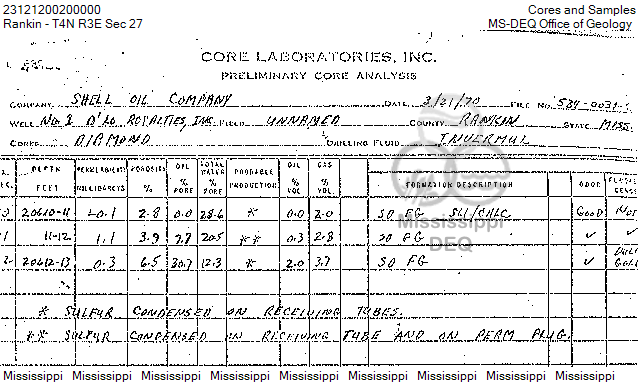 23121200200000 Cores and Samples
Rankin - T4N R3E Sec 27 MS-DEQ Office of Geology
CORE LABORATORIES, INC.
PRELIMINARY CORE ANALYSIS
COMPANY SHELL OIL COMPANY DATE 3/21/70 FILE NO.
WELL NO. 2 D'LO ROYALTIES, INC. FIELD UNNAMED COUNTY RANKIN STATE MISS.
CORES DIAMOND DRILLING FLUID INVERMUL
DEPTH FEET PERMEABILITY MILLIDARCYS POROSITY % OIL % PORE TOTAL WATER % PORE PROBABLE PRODUCTION OIL % VOL. GAS % VOL. FORMATION DESCRIPTION ODOR
20610-11 <0.1 2.8 0.0 28.6 * 0.0 2.0 SD FG SLI/CALC GOOD NOT
11-12 1.1 3.9 7.7 20.5 ** 0.3 2.8 SD FG ✓ ✓
20612-13 0.3 6.5 30.7 12.3 2.0 3.7 SD FG ✓ DULL GOLD
* SULFUR CONDENSED ON RECEIVING TUBES.
** SULFUR CONDENSED IN RECEIVING TUBE AND ON PERM PLUG.
Mississippi DEQ
Mississippi Mississippi Mississippi Mississippi Mississippi Mississippi Mississippi Mississippi Mississippi